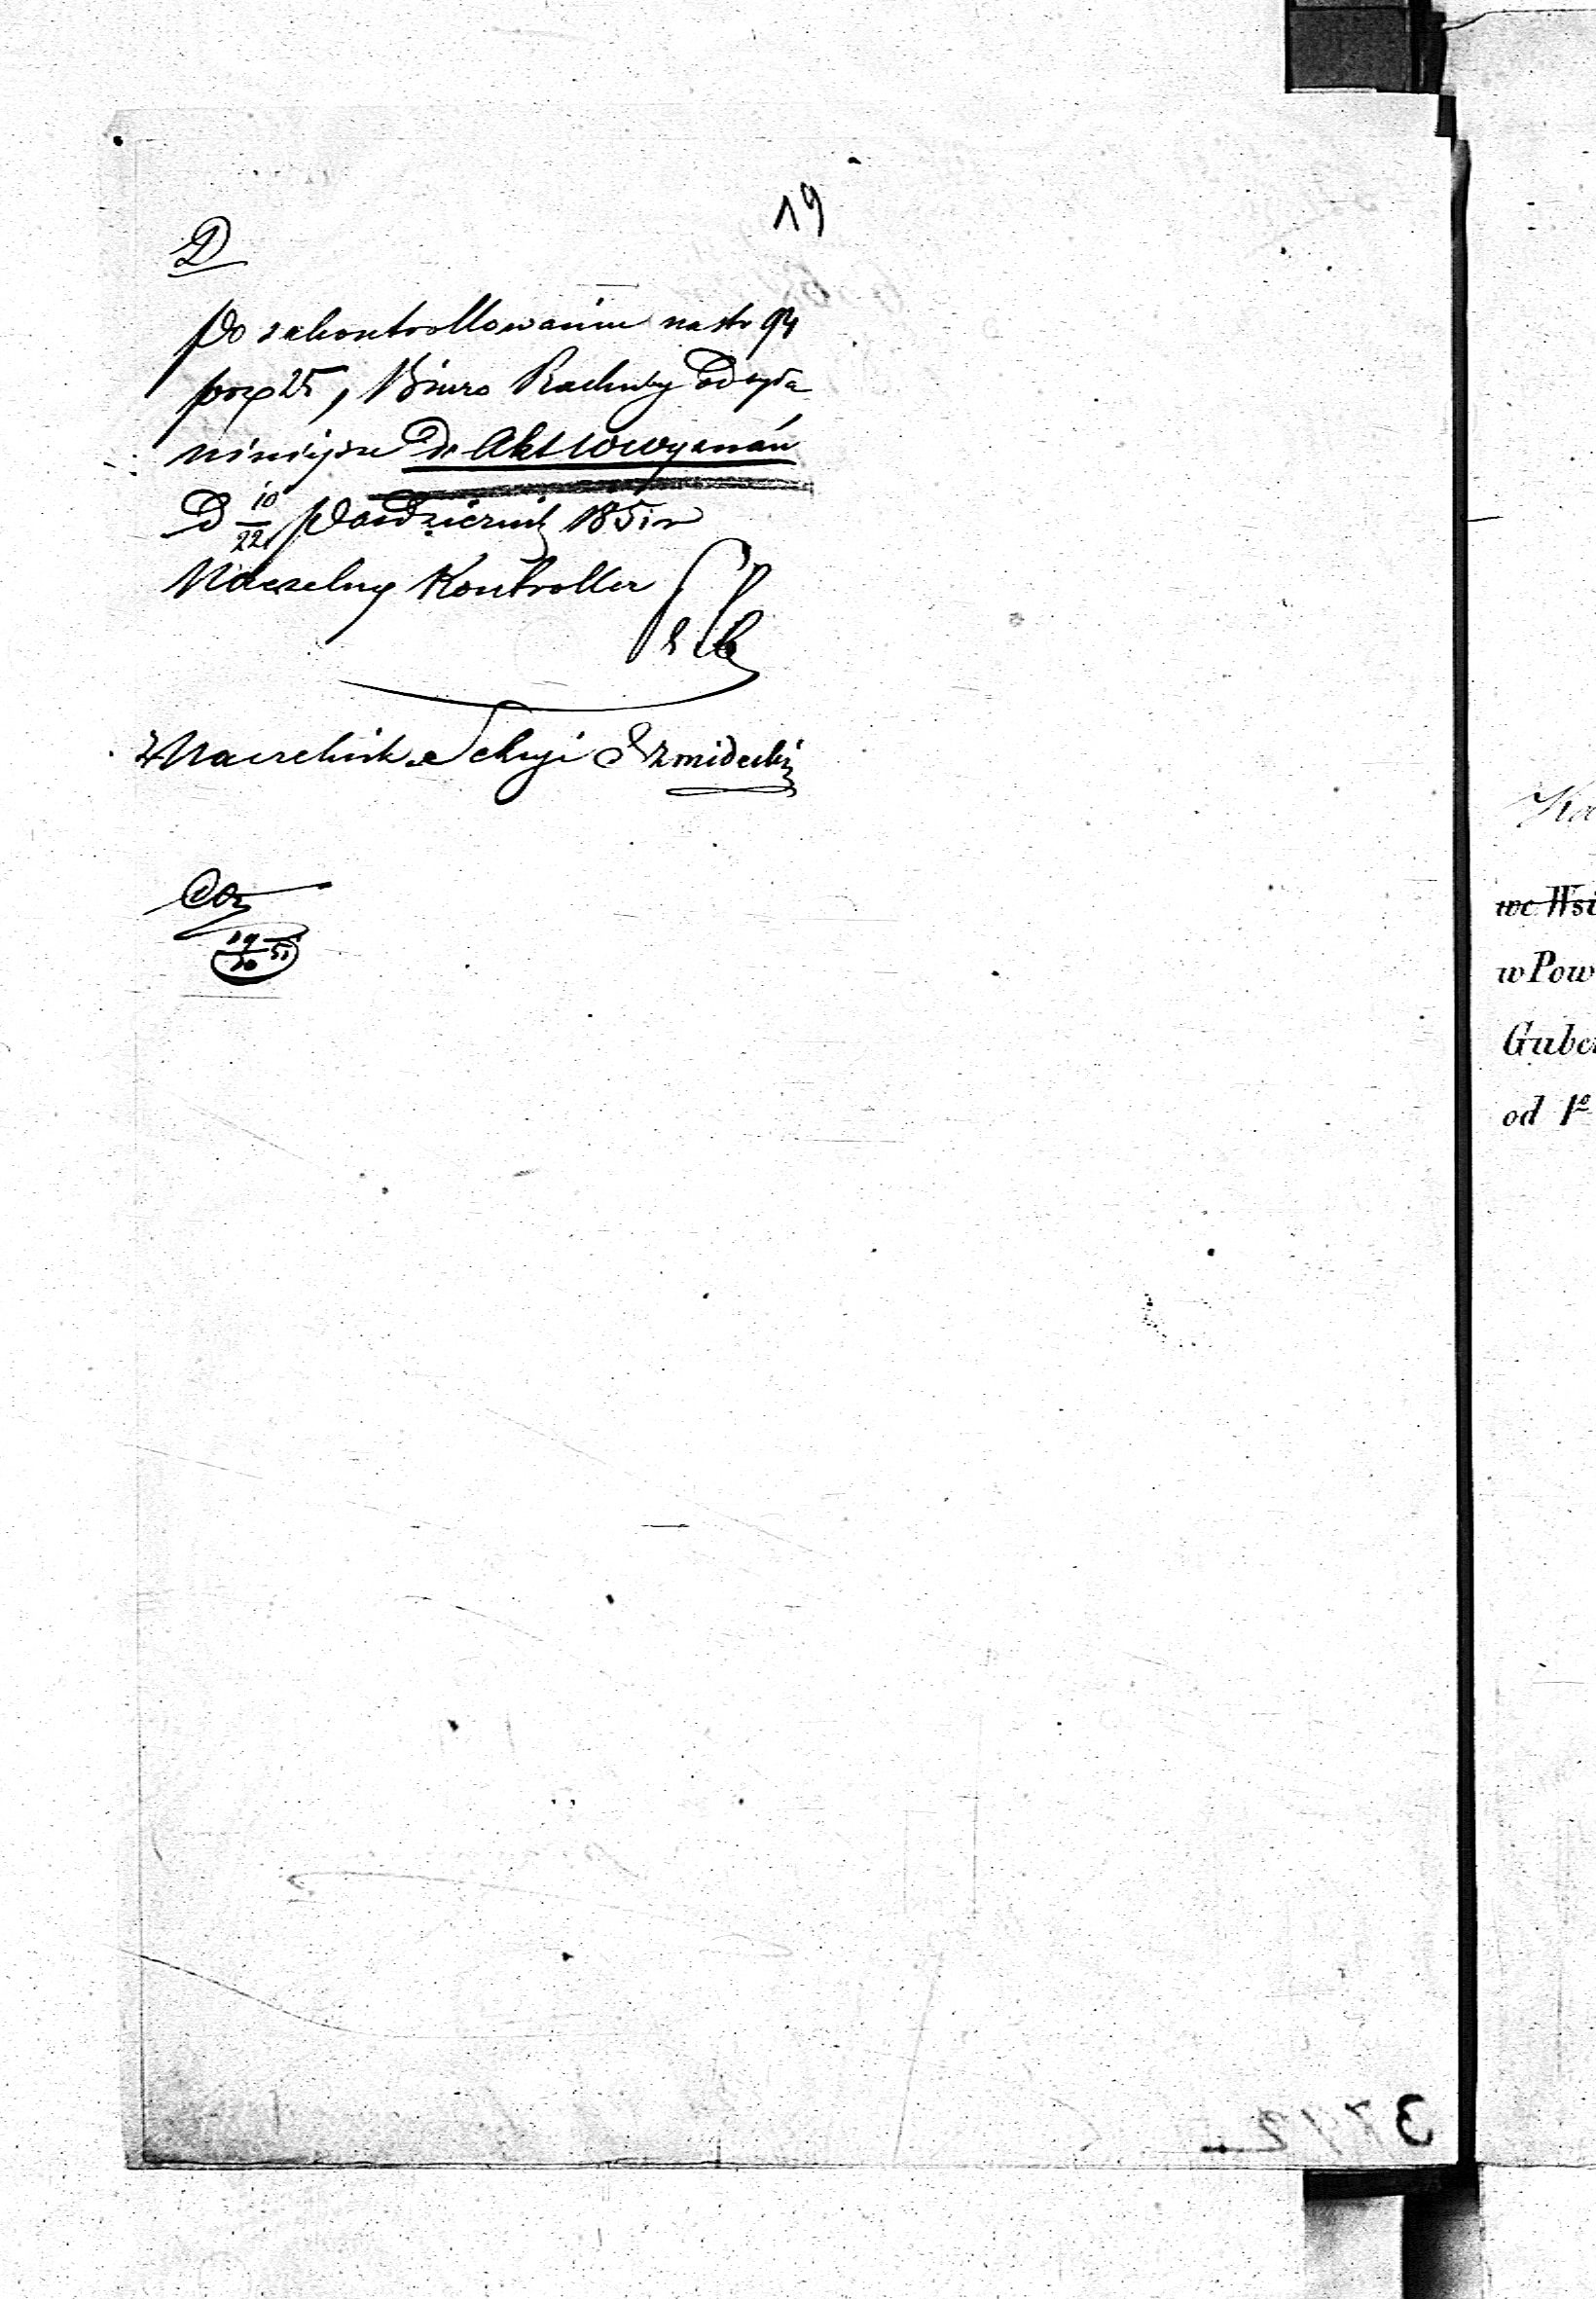 19
D
Po zakontrollowaniu na str 94
poz 25, Biuro Rachuby odsyła
niniejsze do Akt
D 10/22 Październik 1851 r
Naczelny Kontroller
Naczelnik Sekcyi Szmidecki
19/10 51
Ko
we Wsi
w Pow
Guber
od 1º
3742